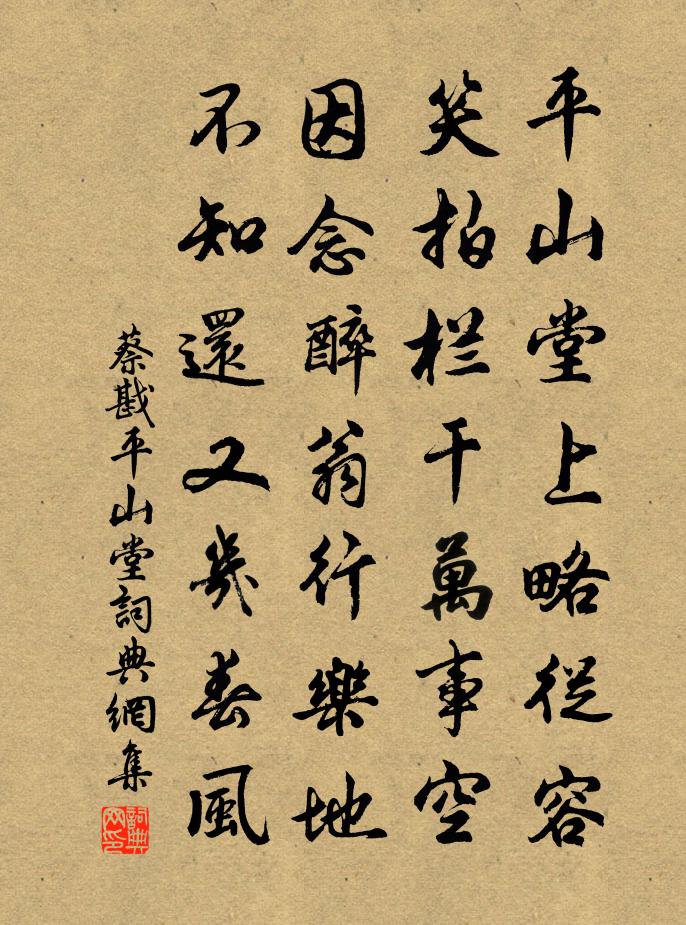 平山堂上略從容
笑拍栏干萬事空
因念醉翁行樂地
不知還又幾春風
蔡戡平山堂詞典網集
詞典网印